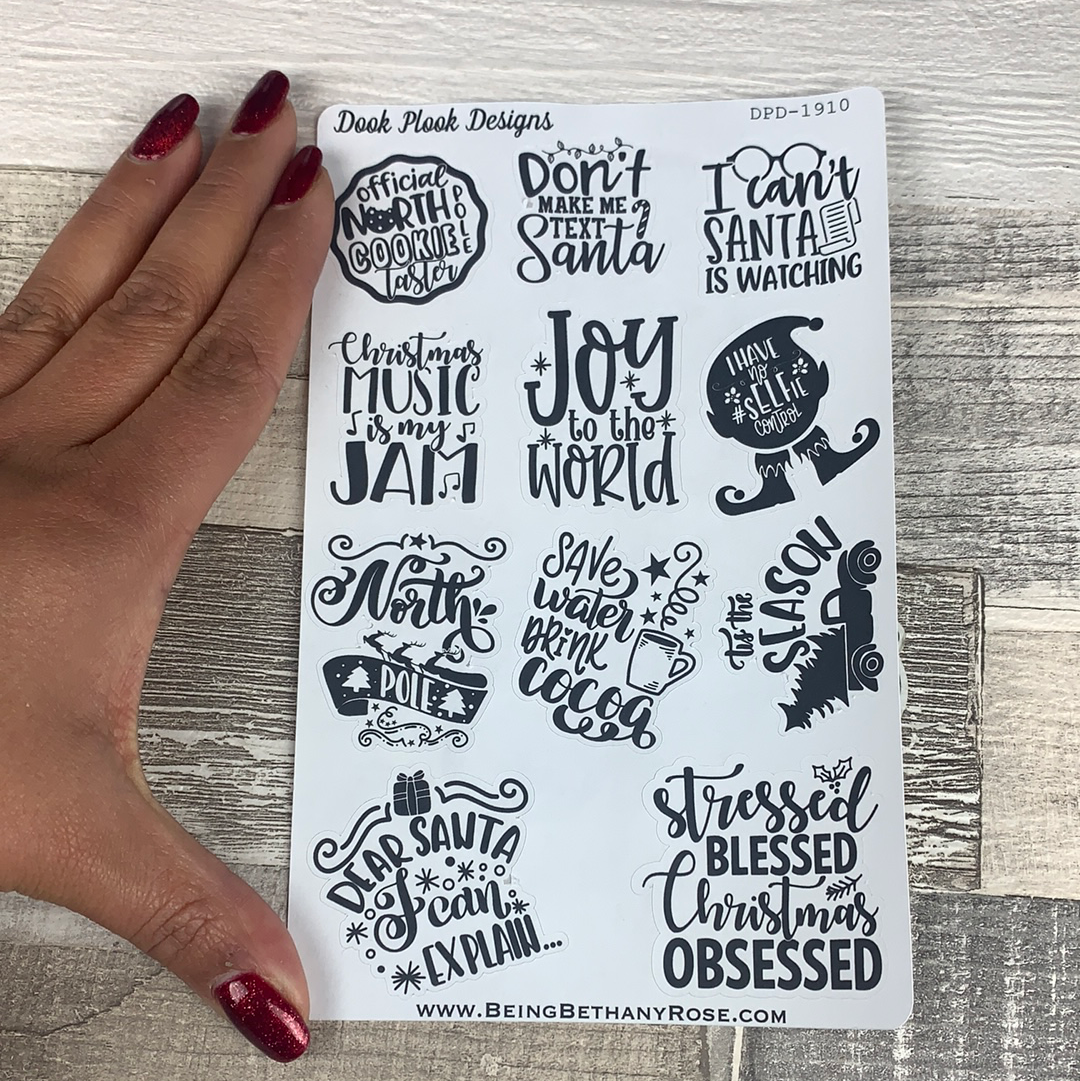 Dook Plook Designs
DPD-1910
official
NORTH POLE
COOKIE
taster
Don't
MAKE ME
TEXT
Santa
I can't
SANTA
IS WATCHING
Christmas
MUSIC
is my
JAM
JOY
to the
WORLD
I HAVE
no
#SELFIE
CONTROL
North
POLE
SAVE
water
DRINK
cocoa
'tis the
SEASON
DEAR SANTA
I can
EXPLAIN...
stressed
BLESSED
Christmas
OBSESSED
WWW.BEINGBETHANYROSE.COM